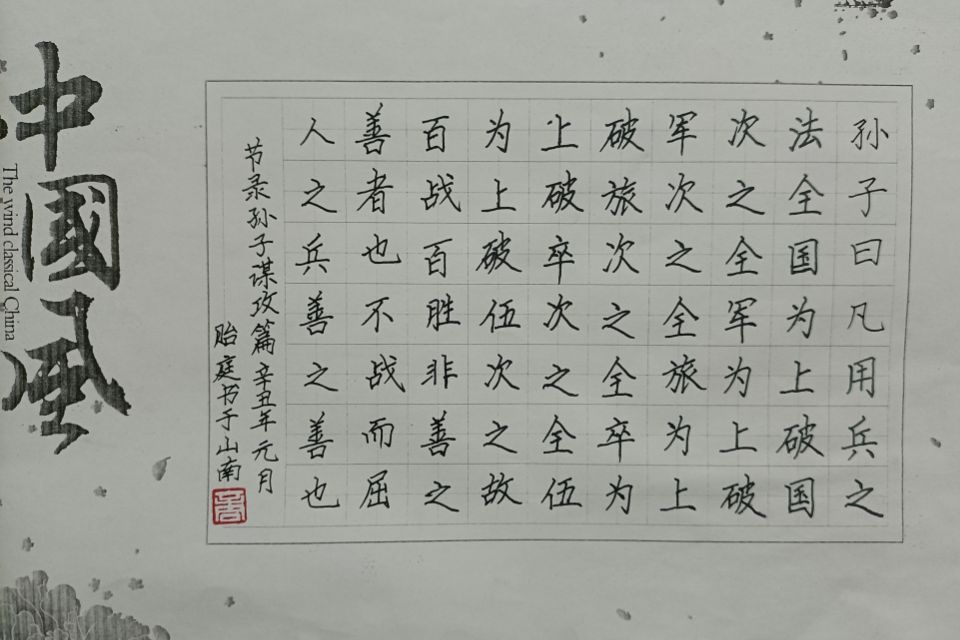 孙子曰凡用兵之
法全国为上破国
次之全军为上破
军次之全旅为上
破旅次之全卒为
上破卒次之全伍
为上破伍次之故
百战百胜非善之
善者也不战而屈
人之兵善之善也
节录孙子谋攻篇辛丑年元月
贻庭书于山南
中國风
The wind classical China